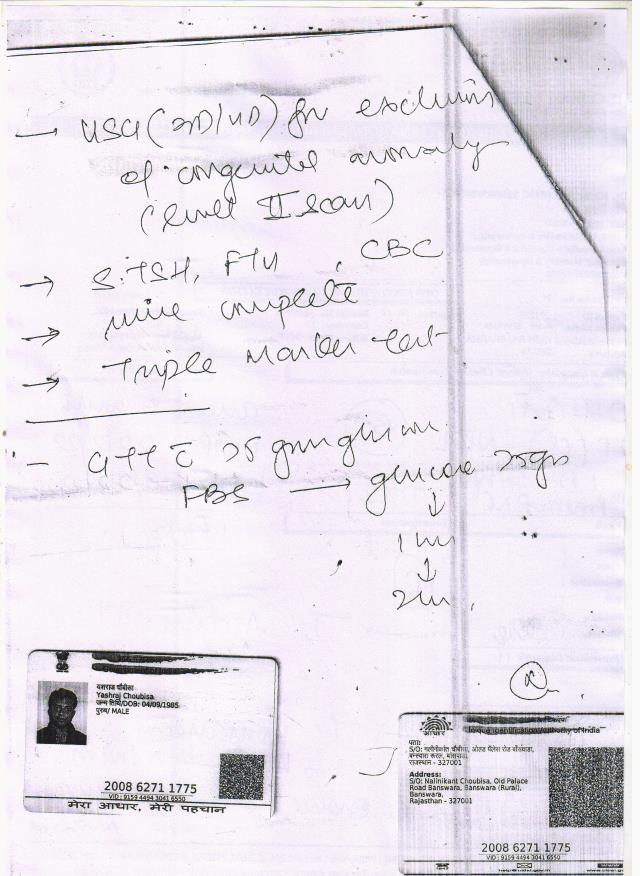 → USG (3D/4D) for exclusion
of congenital anomaly
(Level II scan)
→ S.TSH, FT4, CBC
→ urine complete
→ Triple Marker test
- GTT c 75 gm glucose
FBS → glucose 75gm
↓
1 hr
↓
2 hr
यशराज चौबीसा
Yashraj Choubisa
जन्म तिथि/DOB: 04/09/1985
पुरुष/ MALE
2008 6271 1775
VID : 9159 4494 3041 6550
मेरा आधार, मेरी पहचान
आधार
of India
पता:
राजस्थान - 327001
Address:
S/O: Nalinikant Choubisa, Old Palace
Road Banswara, Banswara (Rural),
Banswara,
Rajasthan - 327001
2008 6271 1775
VID : 9159 4494 3041 6550